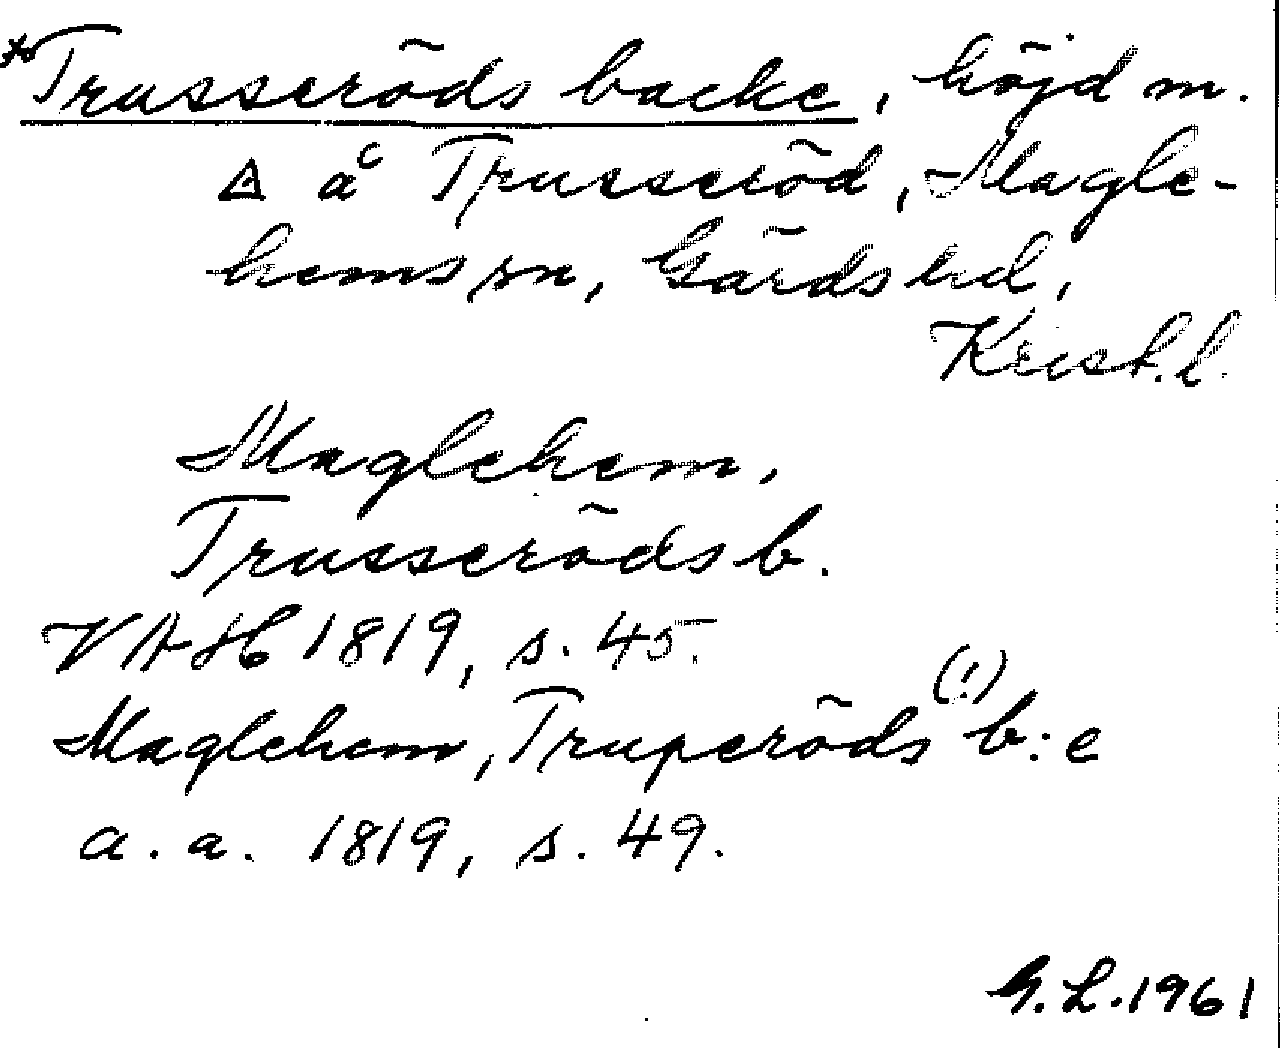 *Trusseröds backe, höjd m.
△ å Trusseröd, Magle-
hems sn, Gärds hd,
Krist. l.
Maglehem,
Trusseröds b.
VAH 1819, s. 45.
Maglehem, Truperöds (!) b:e
a. a. 1819, s. 49.
G. L. 1961